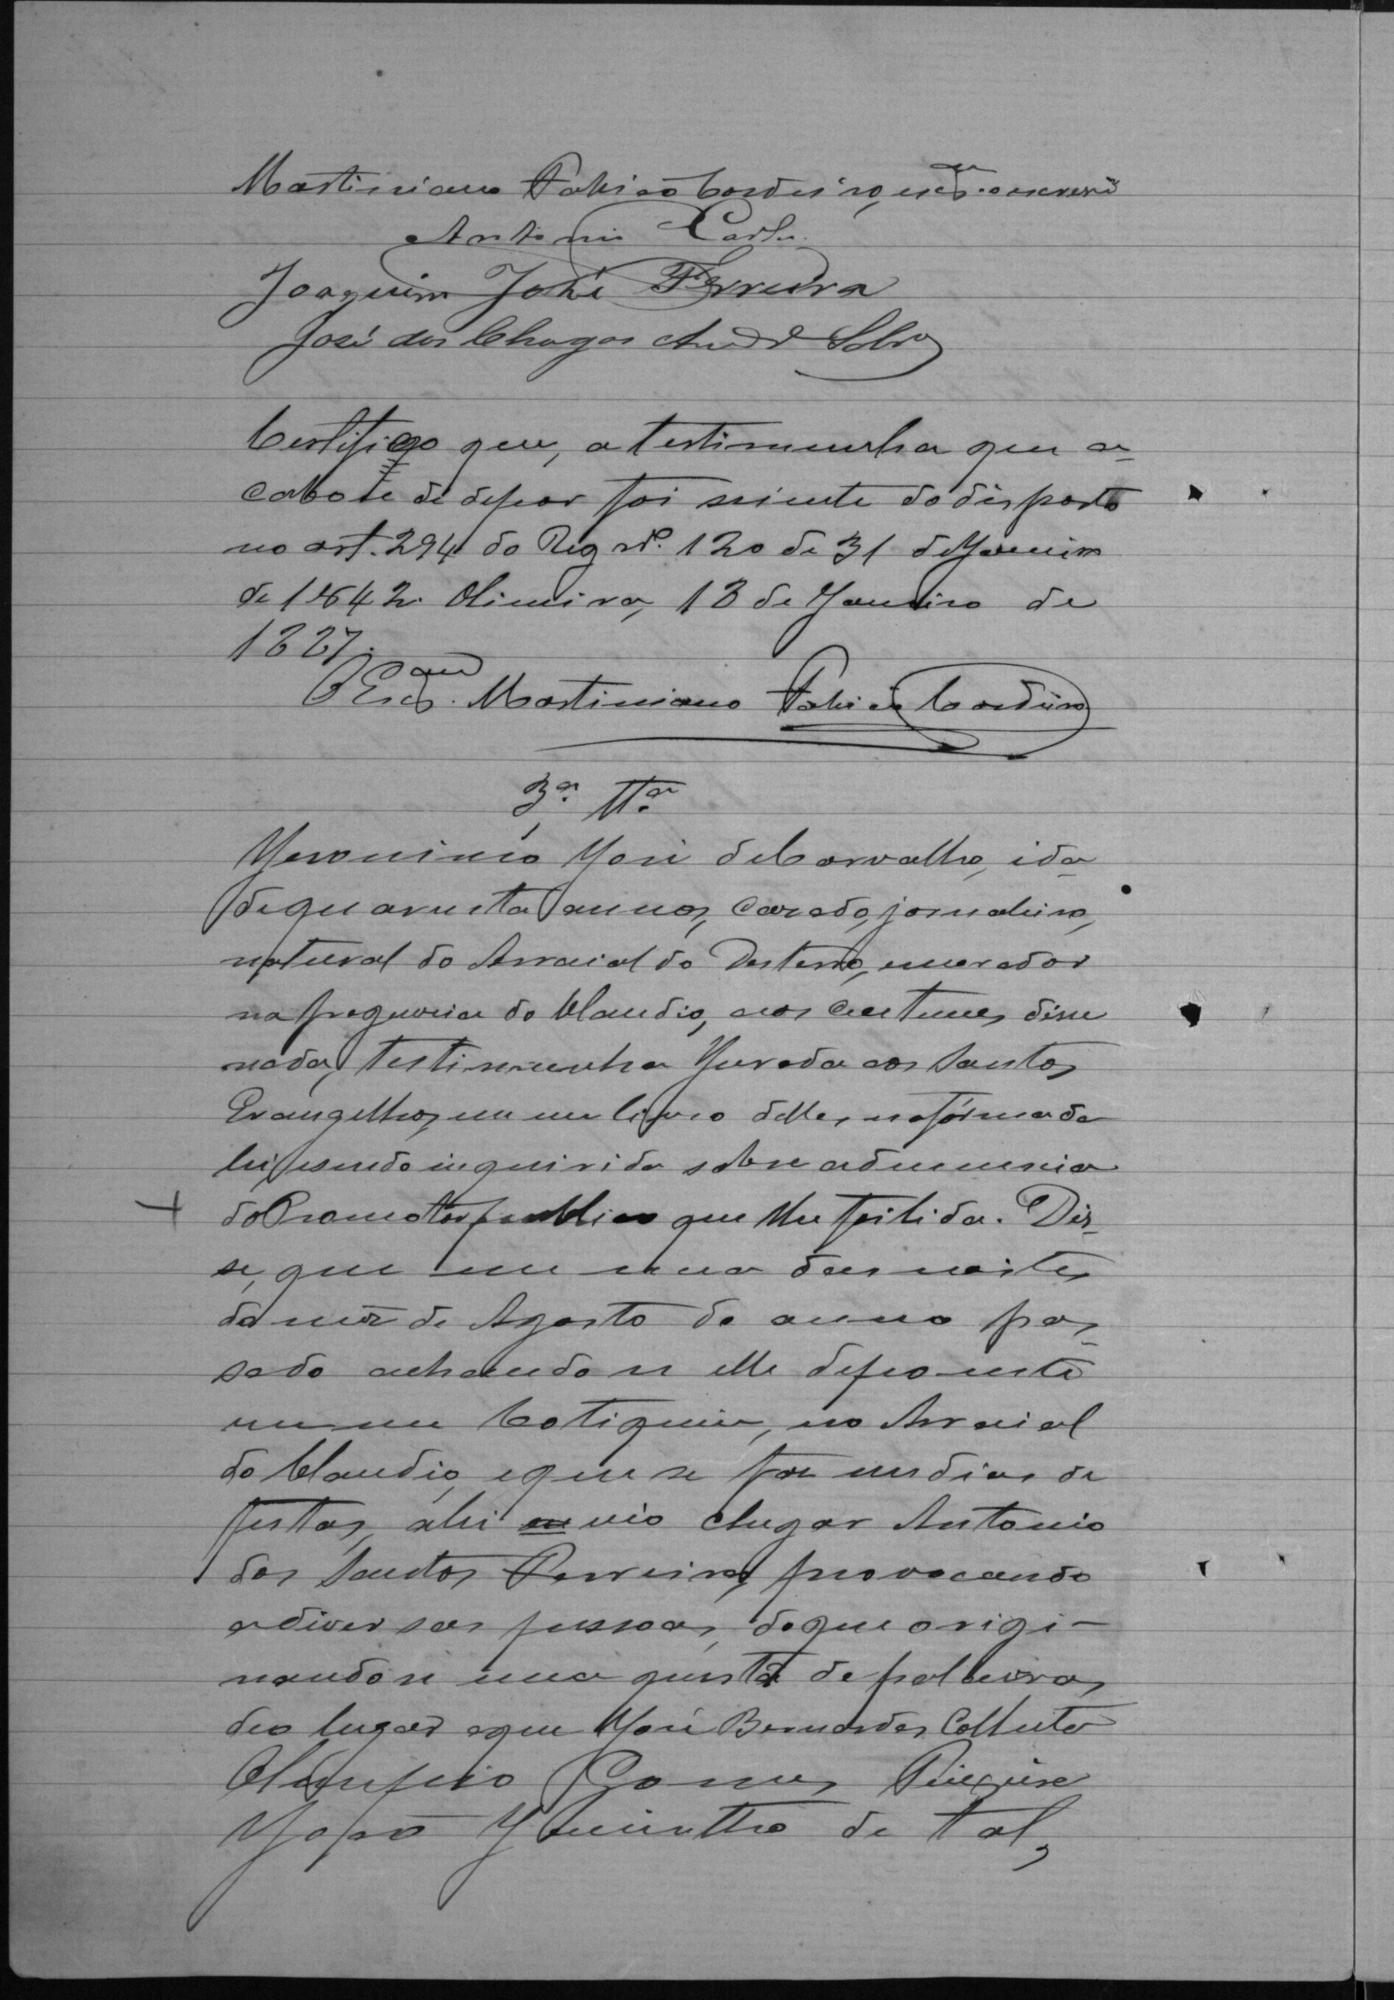 Martiniano Fabião Cordeiro, escr.am o escrevi
Antonio Carlos
Joaquim José Ferreira
José das Chagas And.e Sobr.o
Certifico que, a testimunha que a-
cabo de depor foi sciente do disposto
no art. 294 do Reg nº. 120 de 31 de Janeiro
de 1842. Oliveira, 13 de Janeiro de
1887.
O Escr.am Martiniano Fabião Cordeiro
3.a Tt.a
Jeronimo José de Carvalho, ida
de quarenta annos, casado, jornaleiro,
natural do Arraial do Desterro, morador
na freguesia do Claudio, aos custumes disse
nada, testimunha Jurada aos Santos
Evangelhos, em um livro delles, na fórma da
lei, e sendo inquirida sobre a denuncia
do Promotor publico que lhe foi lida. Dis-
se, que em uma das noites
do mez de Agosto do anno pas-
sado achando se elle depoente
em um botiquim, no Arraial
do Claudio, e que se faz em dias de
festas, ahi vio chegar Antonio
dos Santos Ferreira, provocando
a diversas pessoas, do que origi-
nando se uma questã de palavras,
deo lugar a que José Bernardes Colleto
Olimpio Gomes
João Jacintho de tal,